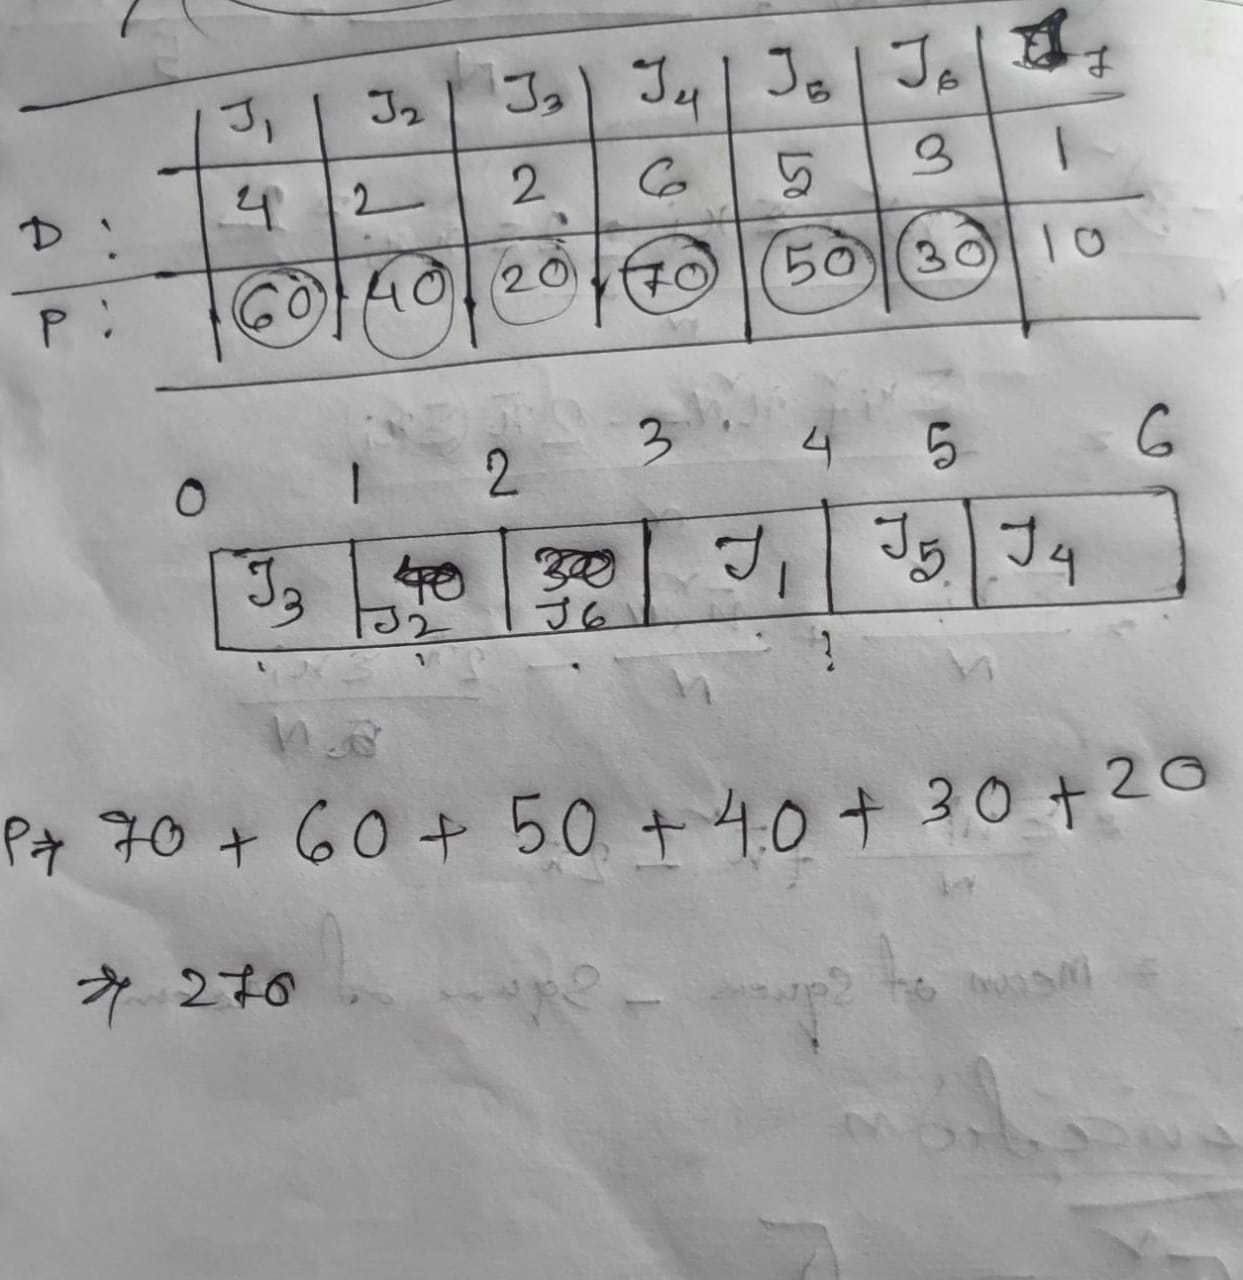 J1 J2 J3 J4 J5 J6 J7
D: 4 2 2 6 5 3 1
P: 60 40 20 70 50 30 10
0 1 2 3 4 5 6
J3 J2 J6 J1 J5 J4
P → 70 + 60 + 50 + 40 + 30 + 20
→ 270